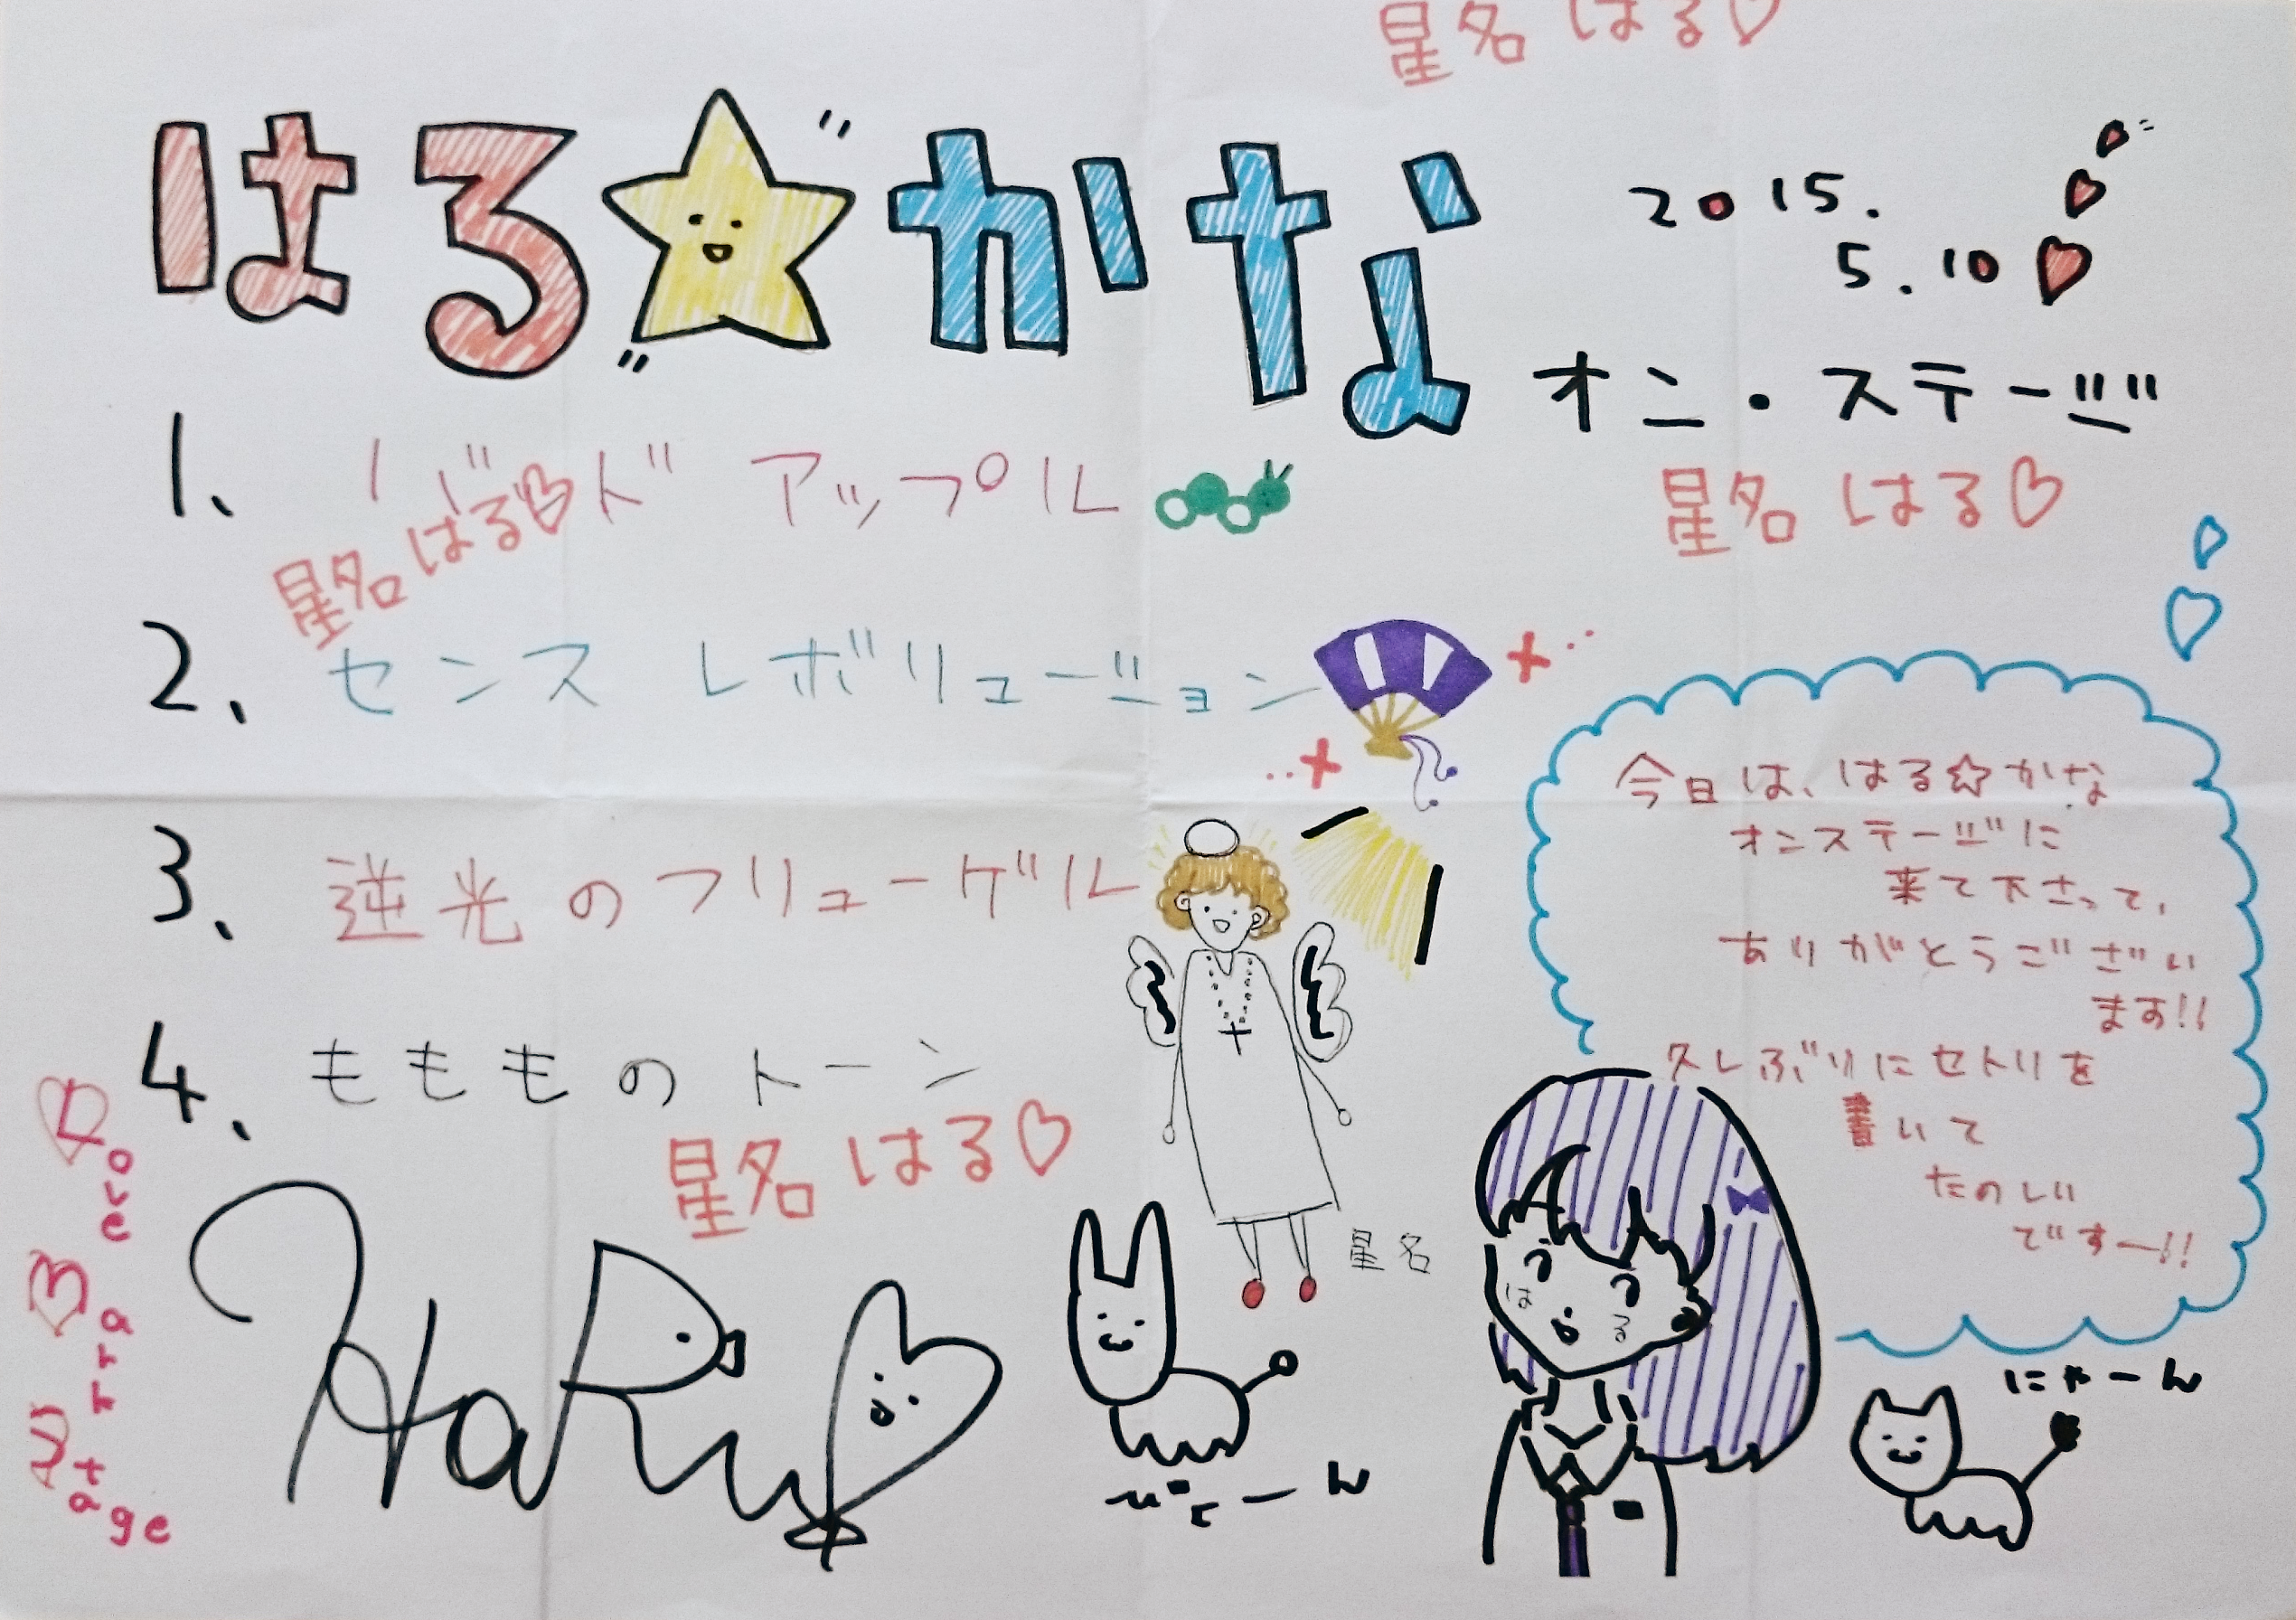 星名 はる♡
はる☆かな
2015.
5.10
オン・ステージ
1、 ド アップル
星名 はる♡
星名 はる♡
2、 センス レボリューション
3、 逆光のフリューゲル
4、 もももの トーン
星名 はる♡
今日は、はる☆かな
オンステージに
来て下さって、
ありがとうござい
ます!!
久しぶりにセトリを
書いて
たのしい
ですー!!
星名
は る
HaRu
ぴょーん
にゃーん
Love